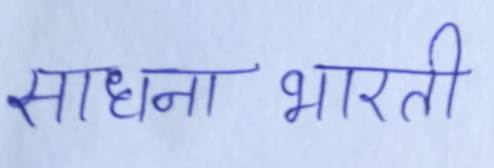 साधना भारती